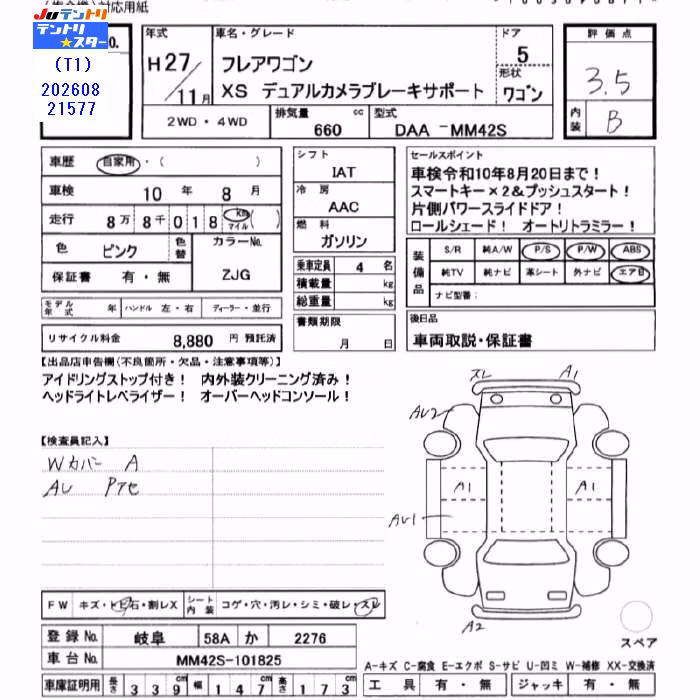 対応用紙
Juテントリ
テントリ★スター
(T1)
202608
21577
No.
年式
H27/11月
車名・グレード
フレアワゴン
XS デュアルカメラブレーキサポート
ドア
5
形状
ワゴン
評価点
3.5
内装
B
2WD・4WD
排気量
660 cc
型式
DAA-MM42S
車歴 自家用・( )
車検 10年 8月
走行 8万8千018 km マイル ( )
色 ピンク 色替 カラーNo. ZJG
保証書 有・無
モデル年式 年 ハンドル 左・右 ディーラー・並行
リサイクル料金 8,880 円 預託済
シフト
IAT
冷房
AAC
燃料
ガソリン
乗車定員 4 名
積載量 kg
総重量 kg
書類期限
月 日
セールスポイント
車検令和10年8月20日まで!
スマートキー×2&プッシュスタート!
片側パワースライドドア!
ロールシェード! オートリトラミラー!
装備品
S/R 純A/W P/S P/W ABS
純TV 純ナビ 革シート 外ナビ エアB
ナビ型番:
後日品
車両取説・保証書
【出品店申告欄(不良箇所・欠品・注意事項等)】
アイドリングストップ付き! 内外装クリーニング済み!
ヘッドライトレベライザー! オーバーヘッドコンソール!
【検査員記入】
Wカバー A
AU Pアセ
スレ A1
AU2
A1 A1
AU1
A2
スペア
FW キズ・トビ石・割レX シート内装 コゲ・穴・汚レ・シミ・破レ・スレ
登録No. 岐阜 58A か 2276
車台No. MM42S-101825
車庫証明用 長さ 339 幅 147 高さ 173
A-キズ C-腐食 E-エクボ S-サビ U-凹ミ W-補修 XX-交換済
工具 有・無 ジャッキ 有・無